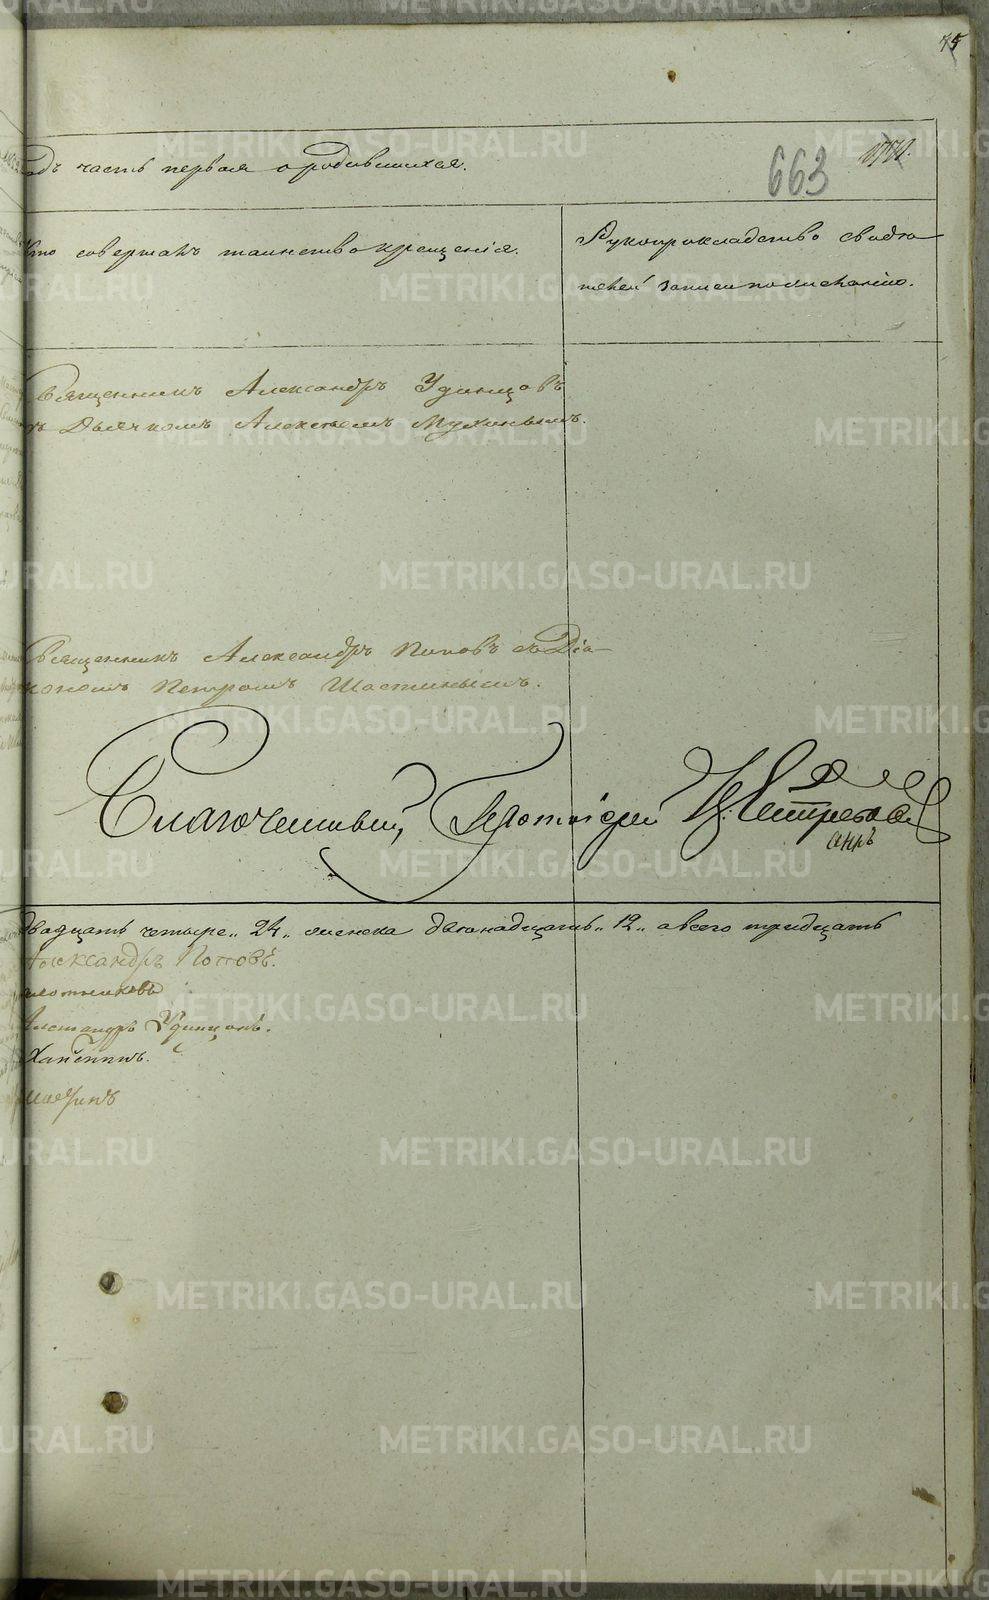 75
одъ часть первая о родившихся.
663
Кто совершалъ таинство крещенія.
Рукоприкладство свидѣ
телей записи по желанію.
Священникъ Александръ Удинцовъ
съ Дьячкомъ Алексѣемъ Мухинымъ.
Священникъ Александръ Поповъ съ Діа-
кономъ Петромъ Шастинымъ.
Благочинный, Протоіерей
двадцать четыре „24„ женска двѣнадцать „12„ а всего тридцать
Александръ Поповъ.
Александръ Удинцовъ.
METRIKI.GASO-URAL.RU